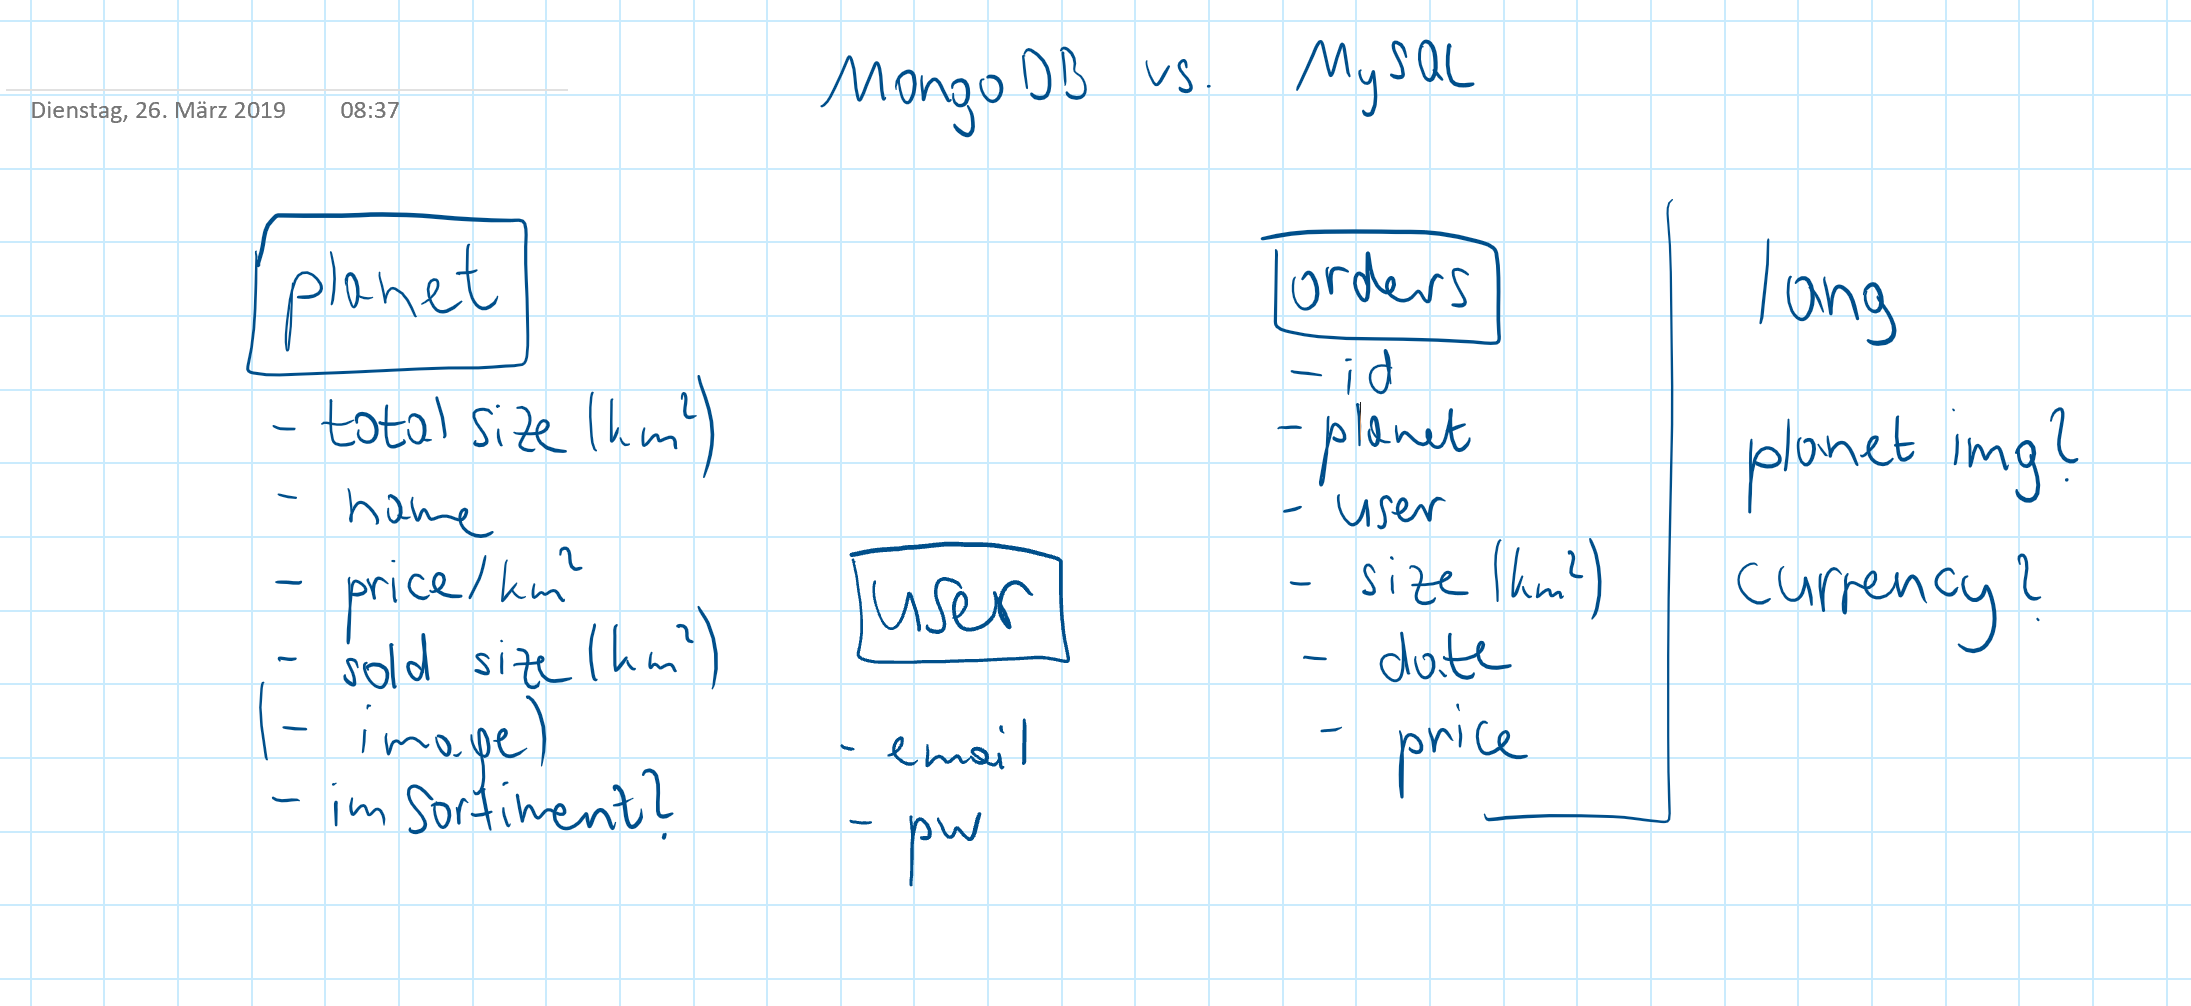 MongoDB vs. MySQL
Dienstag, 26. März 2019 08:37
planet
- total size (km²)
- name
- price/km²
- sold size (km²)
(- image)
- im Sortiment?
user
- email
- pw
orders
- id
- planet
- user
- size (km²)
- date
- price
lang
planet img?
currency?